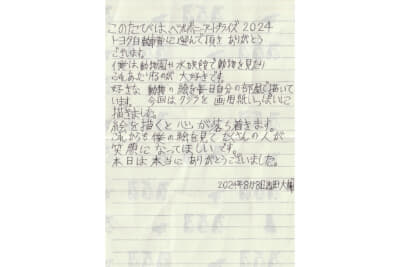 このたびは、ペルポニーアートプライズ2024
トヨタ自動車賞に選んで頂き ありがとう
ございます。
僕は動物園や水族館で動物を見たり
ふれあったりするのが 大好きです。
好きな 動物の 絵を毎日自分の部屋で描いて
います。 今回は クジラを 画用紙いっぱいに
描きました。
絵を描くと 心が落ち着きます。
これからも 僕の絵を見て たくさんの人が
笑顔に なってほしい です。
本日は 本当に ありがとうございました。
2024年8月8日 吉田大